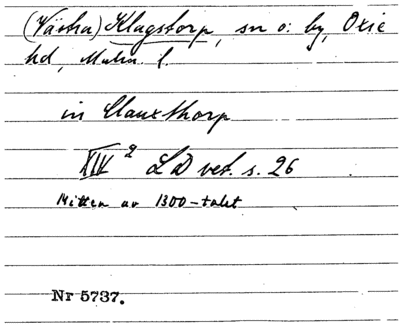 (Västra) Klagstorp, sn o. by, Oxie
hd, Malm. l.
in Clauxthorp
XIV 2 LD vet. s. 26
Mitten av 1300-talet
Nr 5737.